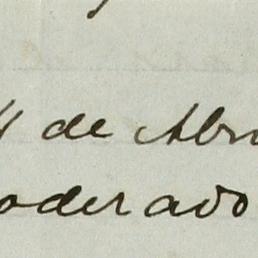 4 de Abr
oderado